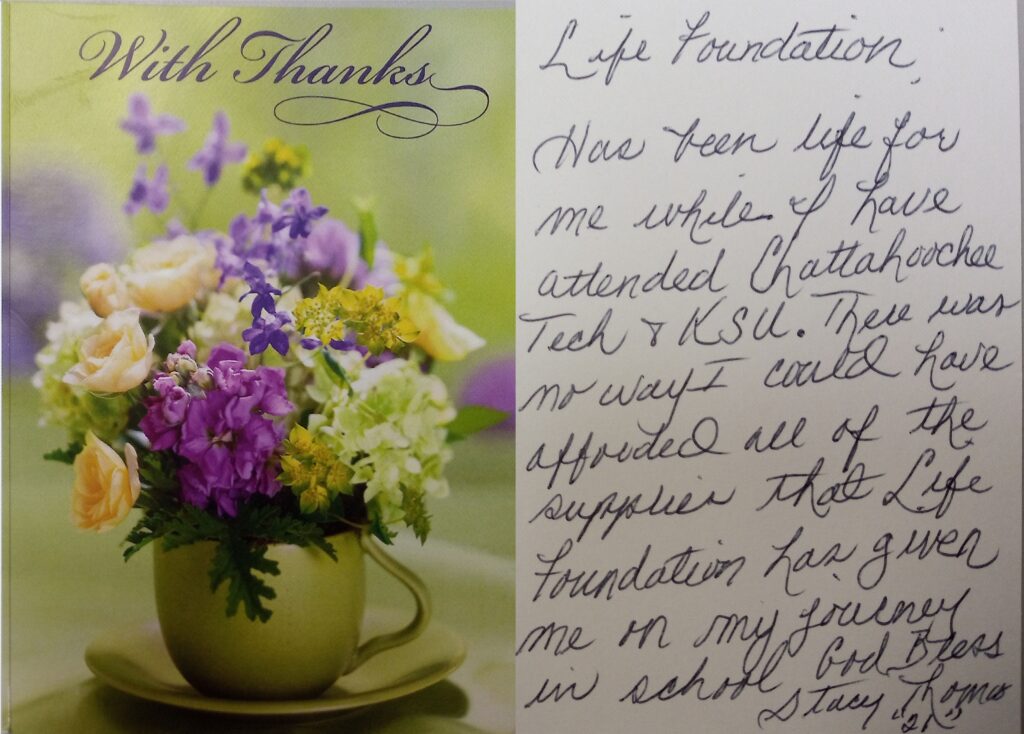 With Thanks
Life Foundation,
Has been life for
me while I have
attended Chattahoochee
Tech & KSU. There was
no way I could have
afforded all of the
supplies that Life
Foundation has given
me on my journey
in school God Bless
Stacy Thomas
"21"